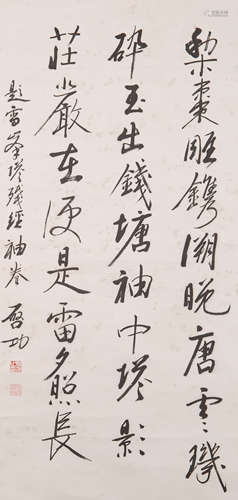 梨棗雕鐫溯晚唐零璣
碎玉出錢塘袖中塔影
莊嚴在便是雷夕照長
題雷峯塔殘經袖卷 啓功